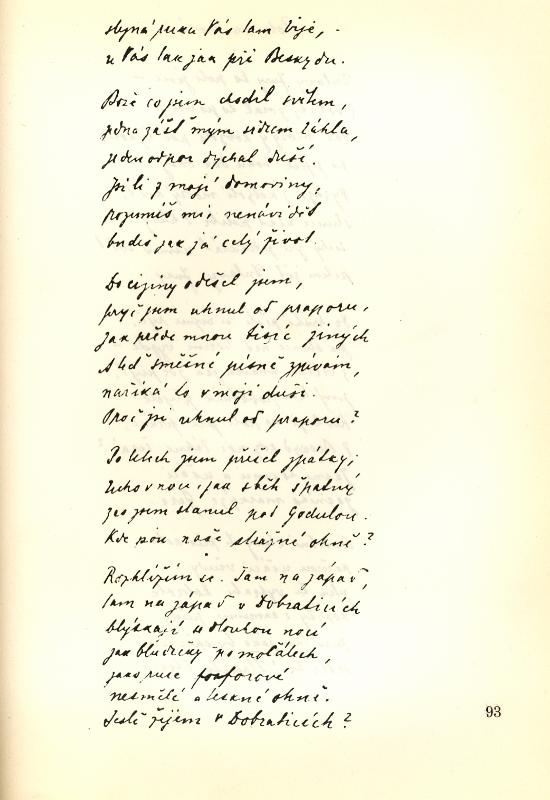 stejná ruka Vás tam bije, -
u Vás tak jak při Beskydu.
Bože co jsem chodil světem,
jedna zášť mým srdcem táhla,
jeden odpor dýchal duší.
Jsi li z mojí domoviny,
rozumíš mi, nenávidět
budeš jak já celý život.
Do ciziny odešel jsem,
pryč jsem uhnul od praporu,
jak přede mnou tisíc jiných
A teď směšné písně zpívám,
naříká to v mojí duši.
Proč jsi uhnul od praporu?
Po letech jsem přišel zpátky,
ticho v noci, jak sběh špatný
zas jsem stanul pod Godulou.
Kde jsou naše strážné ohně?
Rozhlížím se. Tam na západ,
tam na západ v Dobraticích
blýskají se dlouhou nocí
jak bludičky po močálech,
jako ruce fosforové
nesmělé a leskné ohně.
Ještě žijem v Dobraticích?
93